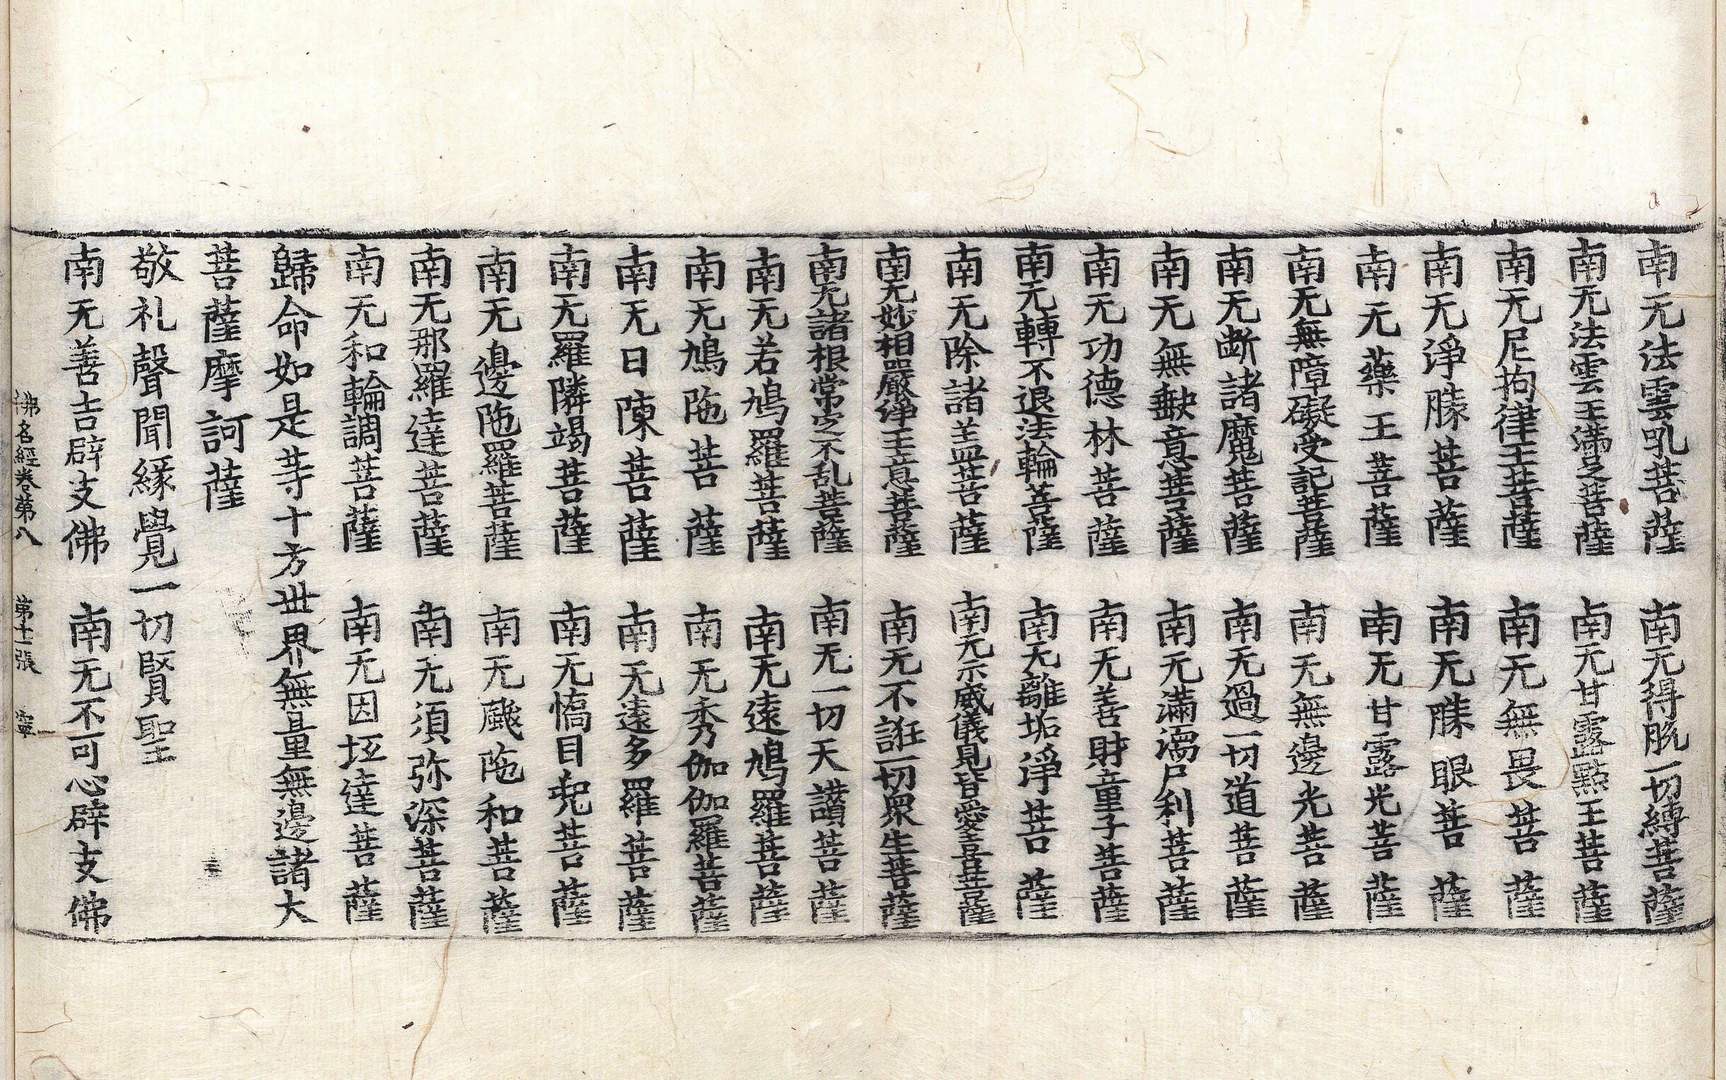 南无法雲吼菩薩　南无得脫一切縛菩薩
南无法雲王滿足菩薩　南无甘露點王菩薩
南无尼拘律王菩薩　南无無畏菩薩
南无淨勝菩薩　南无勝眼菩薩
南无藥王菩薩　南无甘露光菩薩
南无無障礙受記菩薩　南无無邊光菩薩
南无断諸魔菩薩　南无過一切道菩薩
南无無㱂意菩薩　南无滿濡尸利菩薩
南无功德林菩薩　南无善財童子菩薩
南无轉不退法輪菩薩　南无離垢淨菩薩
南无除諸盖菩薩　南无示威儀見皆愛喜菩薩
南无妙相嚴淨王意菩薩　南无不誑一切衆生菩薩
南无諸根常定不乱菩薩　南无一切天讃菩薩
南无若鳩羅菩薩　南无遠鳩羅菩薩
南无鳩陁菩薩　南无秀伽伽羅菩薩
南无日陳菩薩　南无遠多羅菩薩
南无羅隣竭菩薩　南无憍目兜菩薩
南无邊陁羅菩薩　南无颰陁和菩薩
南无那羅達菩薩　南无須弥深菩薩
南无和輪調菩薩　南无因坻達菩薩
歸命如是䓁十方世界無量無邊諸大
菩薩摩訶薩
敬礼聲聞緣覺一切賢聖
南无善吉辟支佛　南无不可心辟支佛
佛名經卷第八　第十二張　寧